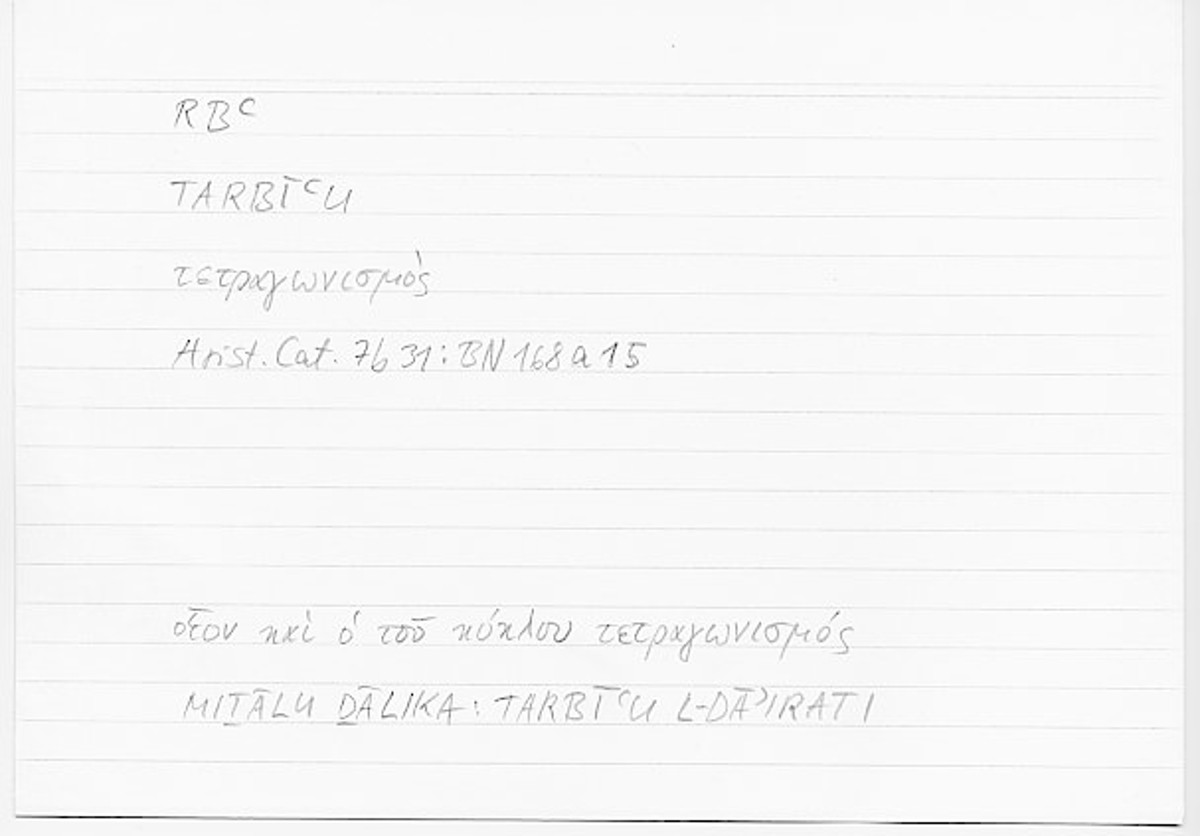 RBᶜ
TARBĪᶜU
τετραγωνισμὸς
Arist. Cat. 7b 31 : BN 168 a 15
οἷον καὶ ὁ τοῦ κύκλου τετραγωνισμός
MIṮĀLU ḎĀLIKA : TARBĪᶜU L-DĀʾIRATI